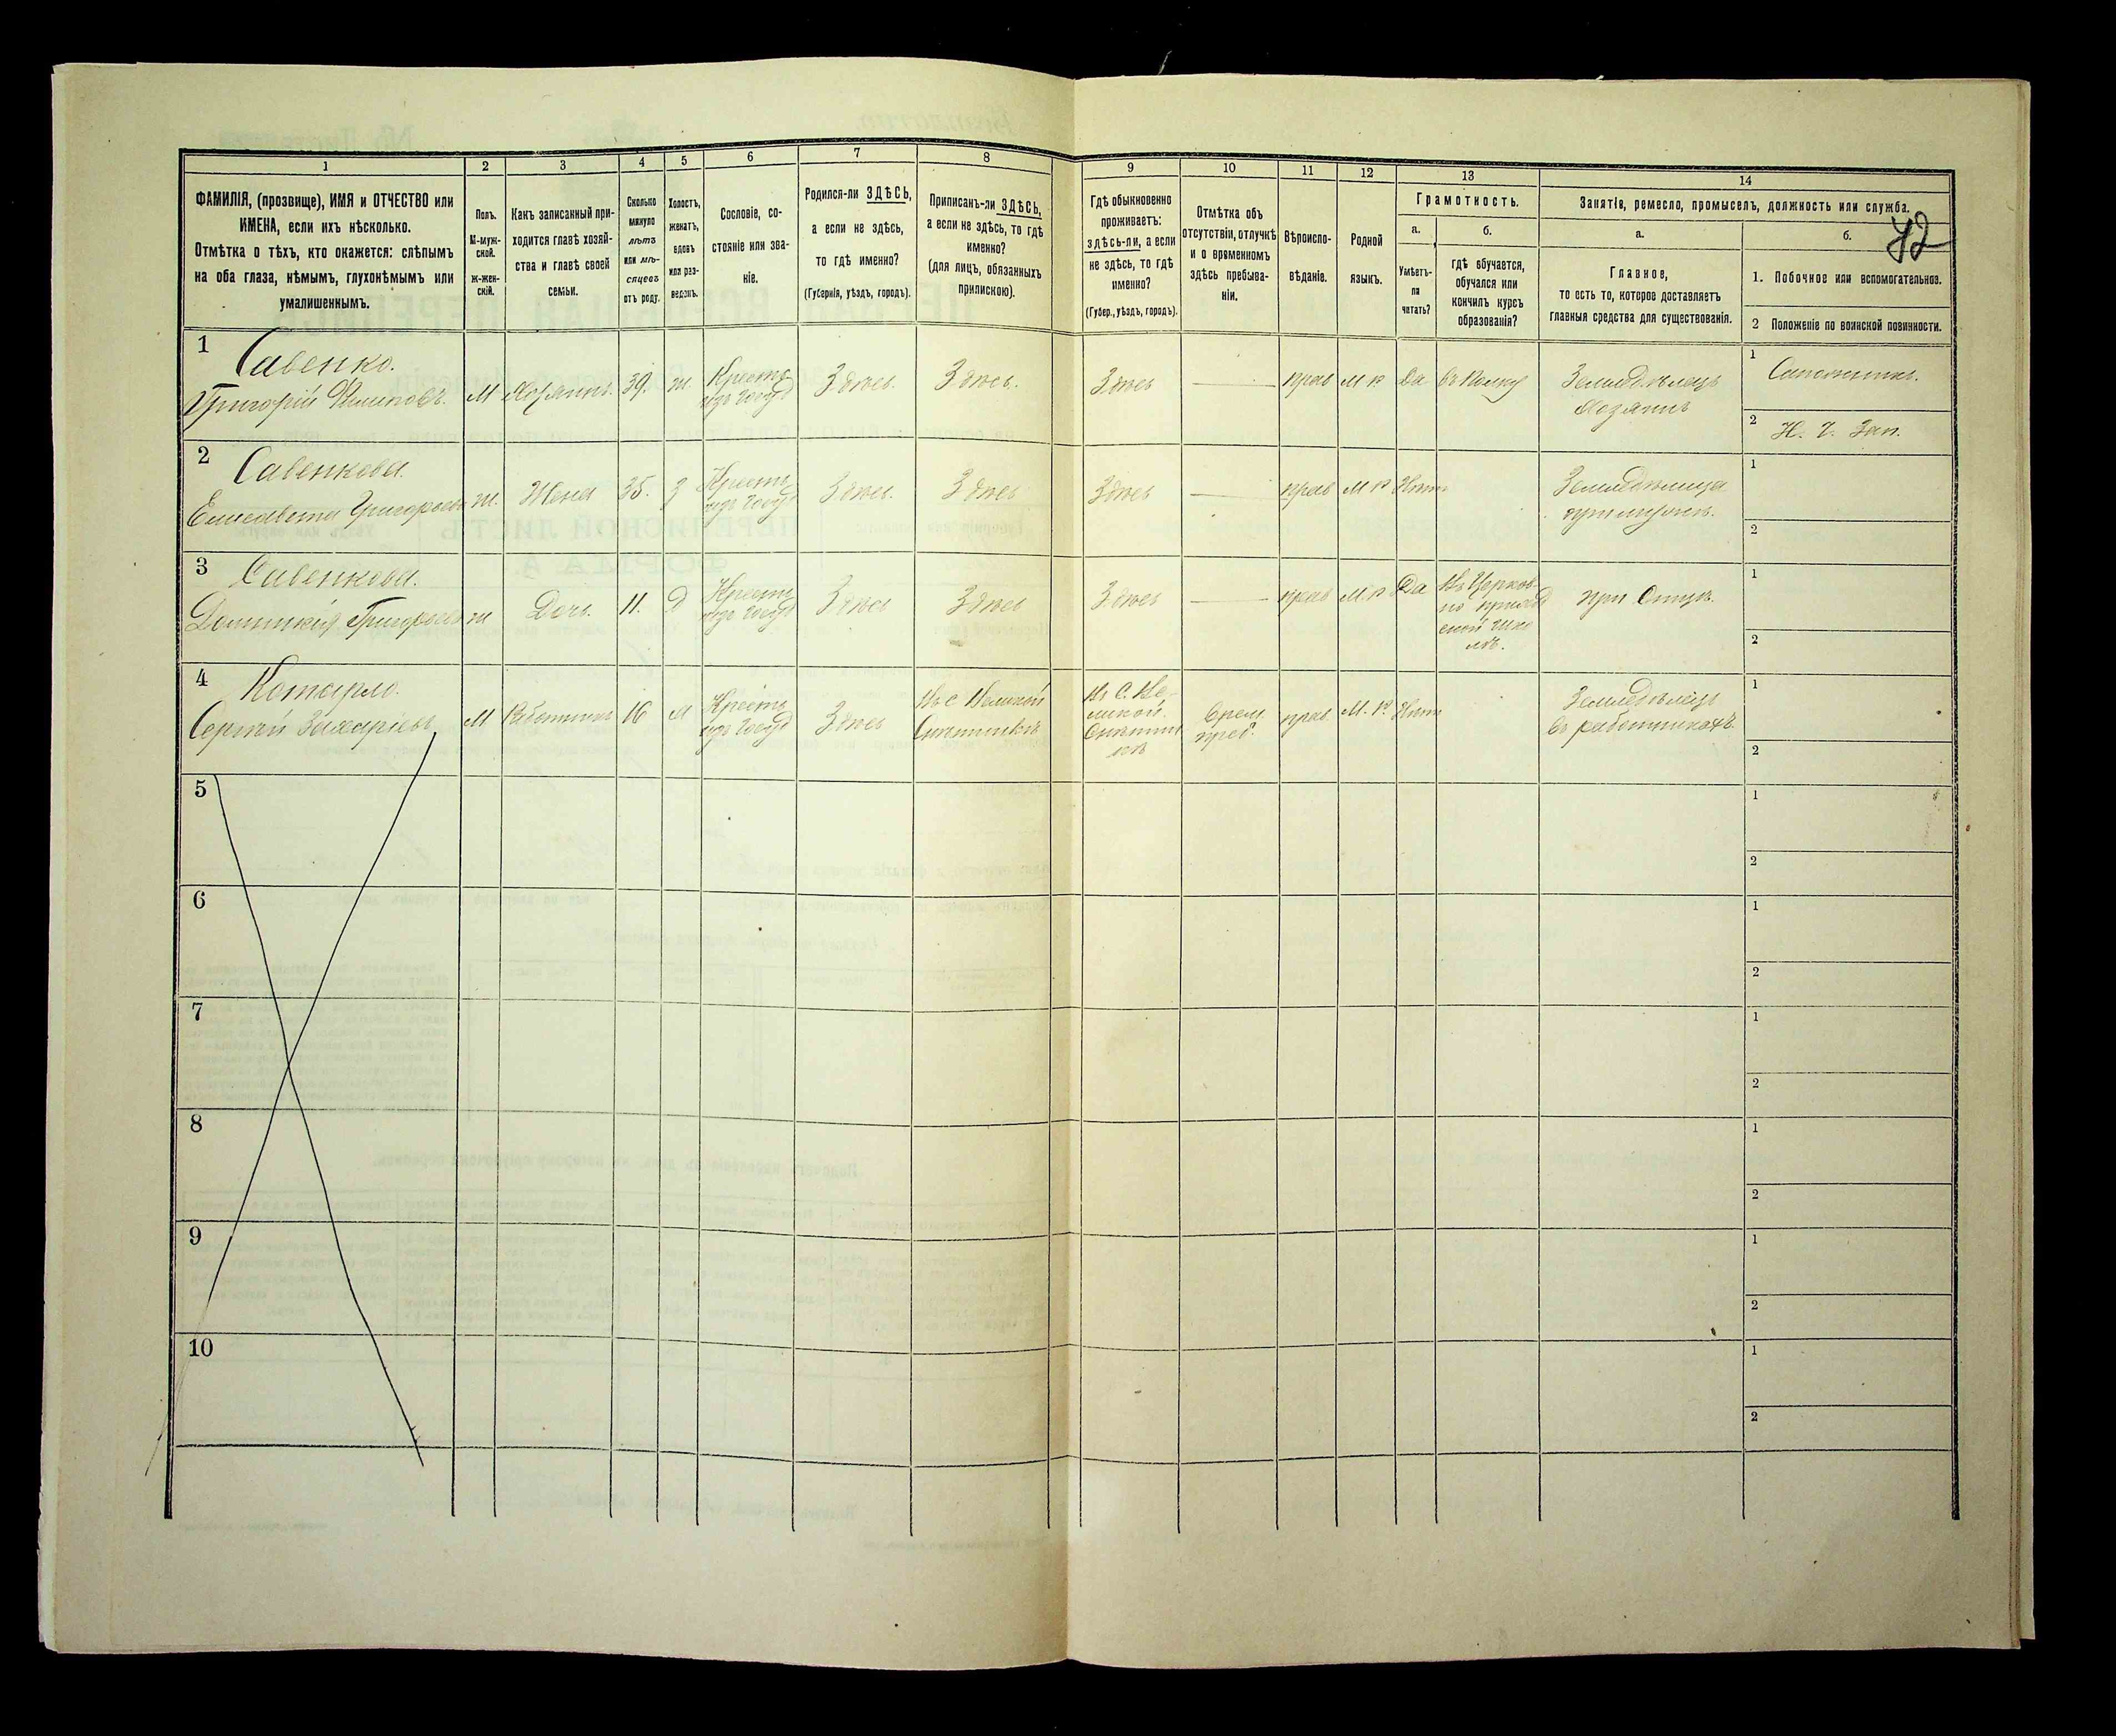 1
2
3
4
5
6
7
8
9
10
11
12
13
14
ФАМИЛІЯ, (прозвище), ИМЯ и ОТЧЕСТВО или
ИМЕНА, если ихъ нѣсколько.
Отмѣтка о тѣхъ, кто окажется: слѣпымъ
на оба глаза, нѣмымъ, глухонѣмымъ или
умалишеннымъ.
Полъ.
М-муж-
ской.
Ж-жен-
скій.
Какъ записанный при-
ходится главѣ хозяй-
ства и главѣ своей
семьи.
Сколько
минуло
лѣтъ
или мѣ-
сяцевъ
отъ роду.
Холостъ,
женатъ,
вдовъ
или раз-
веденъ.
Сословіе, со-
стояніе или зва-
ніе.
Родился-ли ЗДѢСЬ,
а если не здѣсь,
то гдѣ именно?
(Губернія, уѣздъ, городъ).
Приписанъ-ли ЗДѢСЬ,
а если не здѣсь, то гдѣ
именно?
(для лицъ, обязанныхъ
припискою).
Гдѣ обыкновенно
проживаетъ:
здѣсь-ли, а если
не здѣсь, то гдѣ
именно?
(Губер., уѣздъ, городъ).
Отмѣтка объ
отсутствіи, отлучкѣ
и о временномъ
здѣсь пребыва-
ніи.
Вѣроиспо-
вѣданіе.
Родной
языкъ.
Грамотность.
а.
Умѣетъ-
ли
читать?
б.
гдѣ обучается,
обучался или
кончилъ курсъ
образованія?
Занятіе, ремесло, промыселъ, должность или служба.
а.
Главное,
то есть то, которое доставляетъ
главныя средства для существованія.
б.
42
1. Побочное или вспомогательное.
2 Положеніе по воинской повинности.
1 Савенко.
Григорій М Хозяинъ. 39. ж. Крестъ Здѣсь. Здѣсь. Здѣсь прав М Р Да въ полку Земледѣлецъ
хозяинъ
1 Сапожникъ.
2 Н. Ч. Зап.
2 Савенкова.
Елисавета Григорьев ж. Жена 35. З Крестъ Здѣсь. Здѣсь Здѣсь прав М Р Нѣтъ Земледѣлица
при мужѣ.
1
2
3 Савенкова.
Домникія Григорьев ж Дочь 11. Д Крестъ Здѣсь Здѣсь Здѣсь прав М. Р Да Въ Церков-
но приход
ской шко
лѣ.
при Отцѣ.
1
2
4 Котарло.
Сергій Захаріевъ М Работникъ 16 Крестъ Здѣсь Въ с Великой
Снѣтинкѣ
Въ С. Ве-
ликой
Снѣтин
кѣ
Врем.
преб.
прав. М. Р. Нѣтъ Земледѣлецъ
въ работникахъ.
1
2
5
1
2
6
1
2
7
1
2
8
1
2
9
1
2
10
1
2